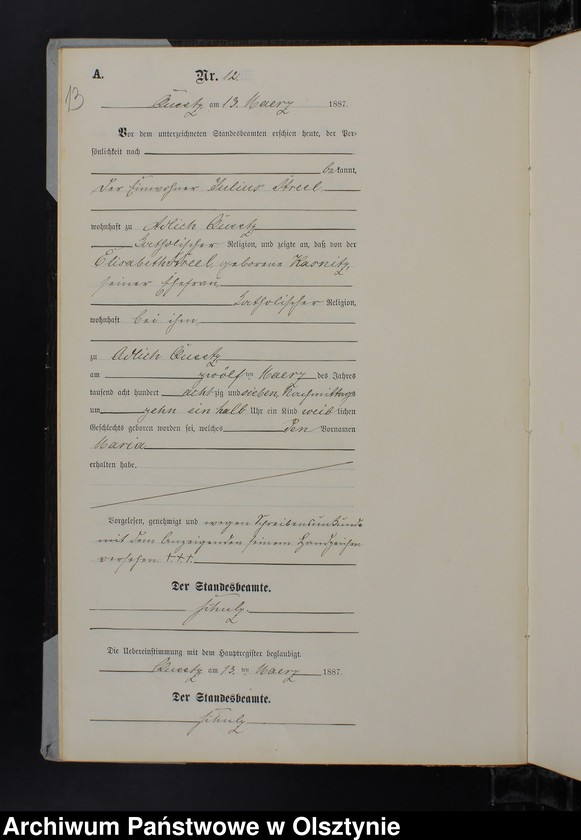 A.
Nr. 12
13
Queetz am 13. Maerz 1887.
Vor dem unterzeichneten Standesbeamten erschien heute, der Per-
sönlichkeit nach
bekannt,
der Einwohner Julius Streel
wohnhaft zu Adlich Queetz
katholischer Religion, und zeigte an, daß von der
Elisabeth Streel, geborene Kasnitz,
seiner Ehefrau
katholischer Religion,
wohnhaft bei ihm
zu Adlich Queetz
am zwölf ten Maerz des Jahres
tausend acht hundert achtzig und sieben, Nachmittags
um zehn ein halb Uhr ein Kind weiblichen
Geschlechts geboren worden sei, welches den Vornamen
Maria
erhalten habe.
Vorgelesen, genehmigt und wegen Schreibensunkunde
mit dem Anzeigenden seinem Handzeichen
versehen †††.
Der Standesbeamte.
Schulz
Die Uebereinstimmung mit dem Hauptregister beglaubigt.
Queetz am 13. ten Maerz 1887.
Der Standesbeamte.
Schulz
Archiwum Państwowe w Olsztynie